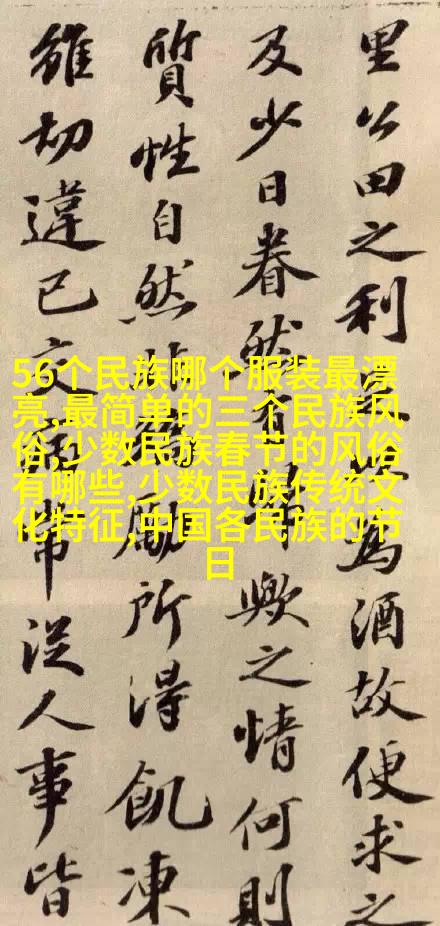 里公田之利為酒故便求之
及少日眷然有歸歟之情何則
質性自然非矯勵所得飢凍
雖切違已交病常從人事皆
56个民族哪个服装最漂
亮,最简单的三个民族风
俗,少数民族春节的风俗
有哪些,少数民族传统文
化特征,中国各民族的节
日